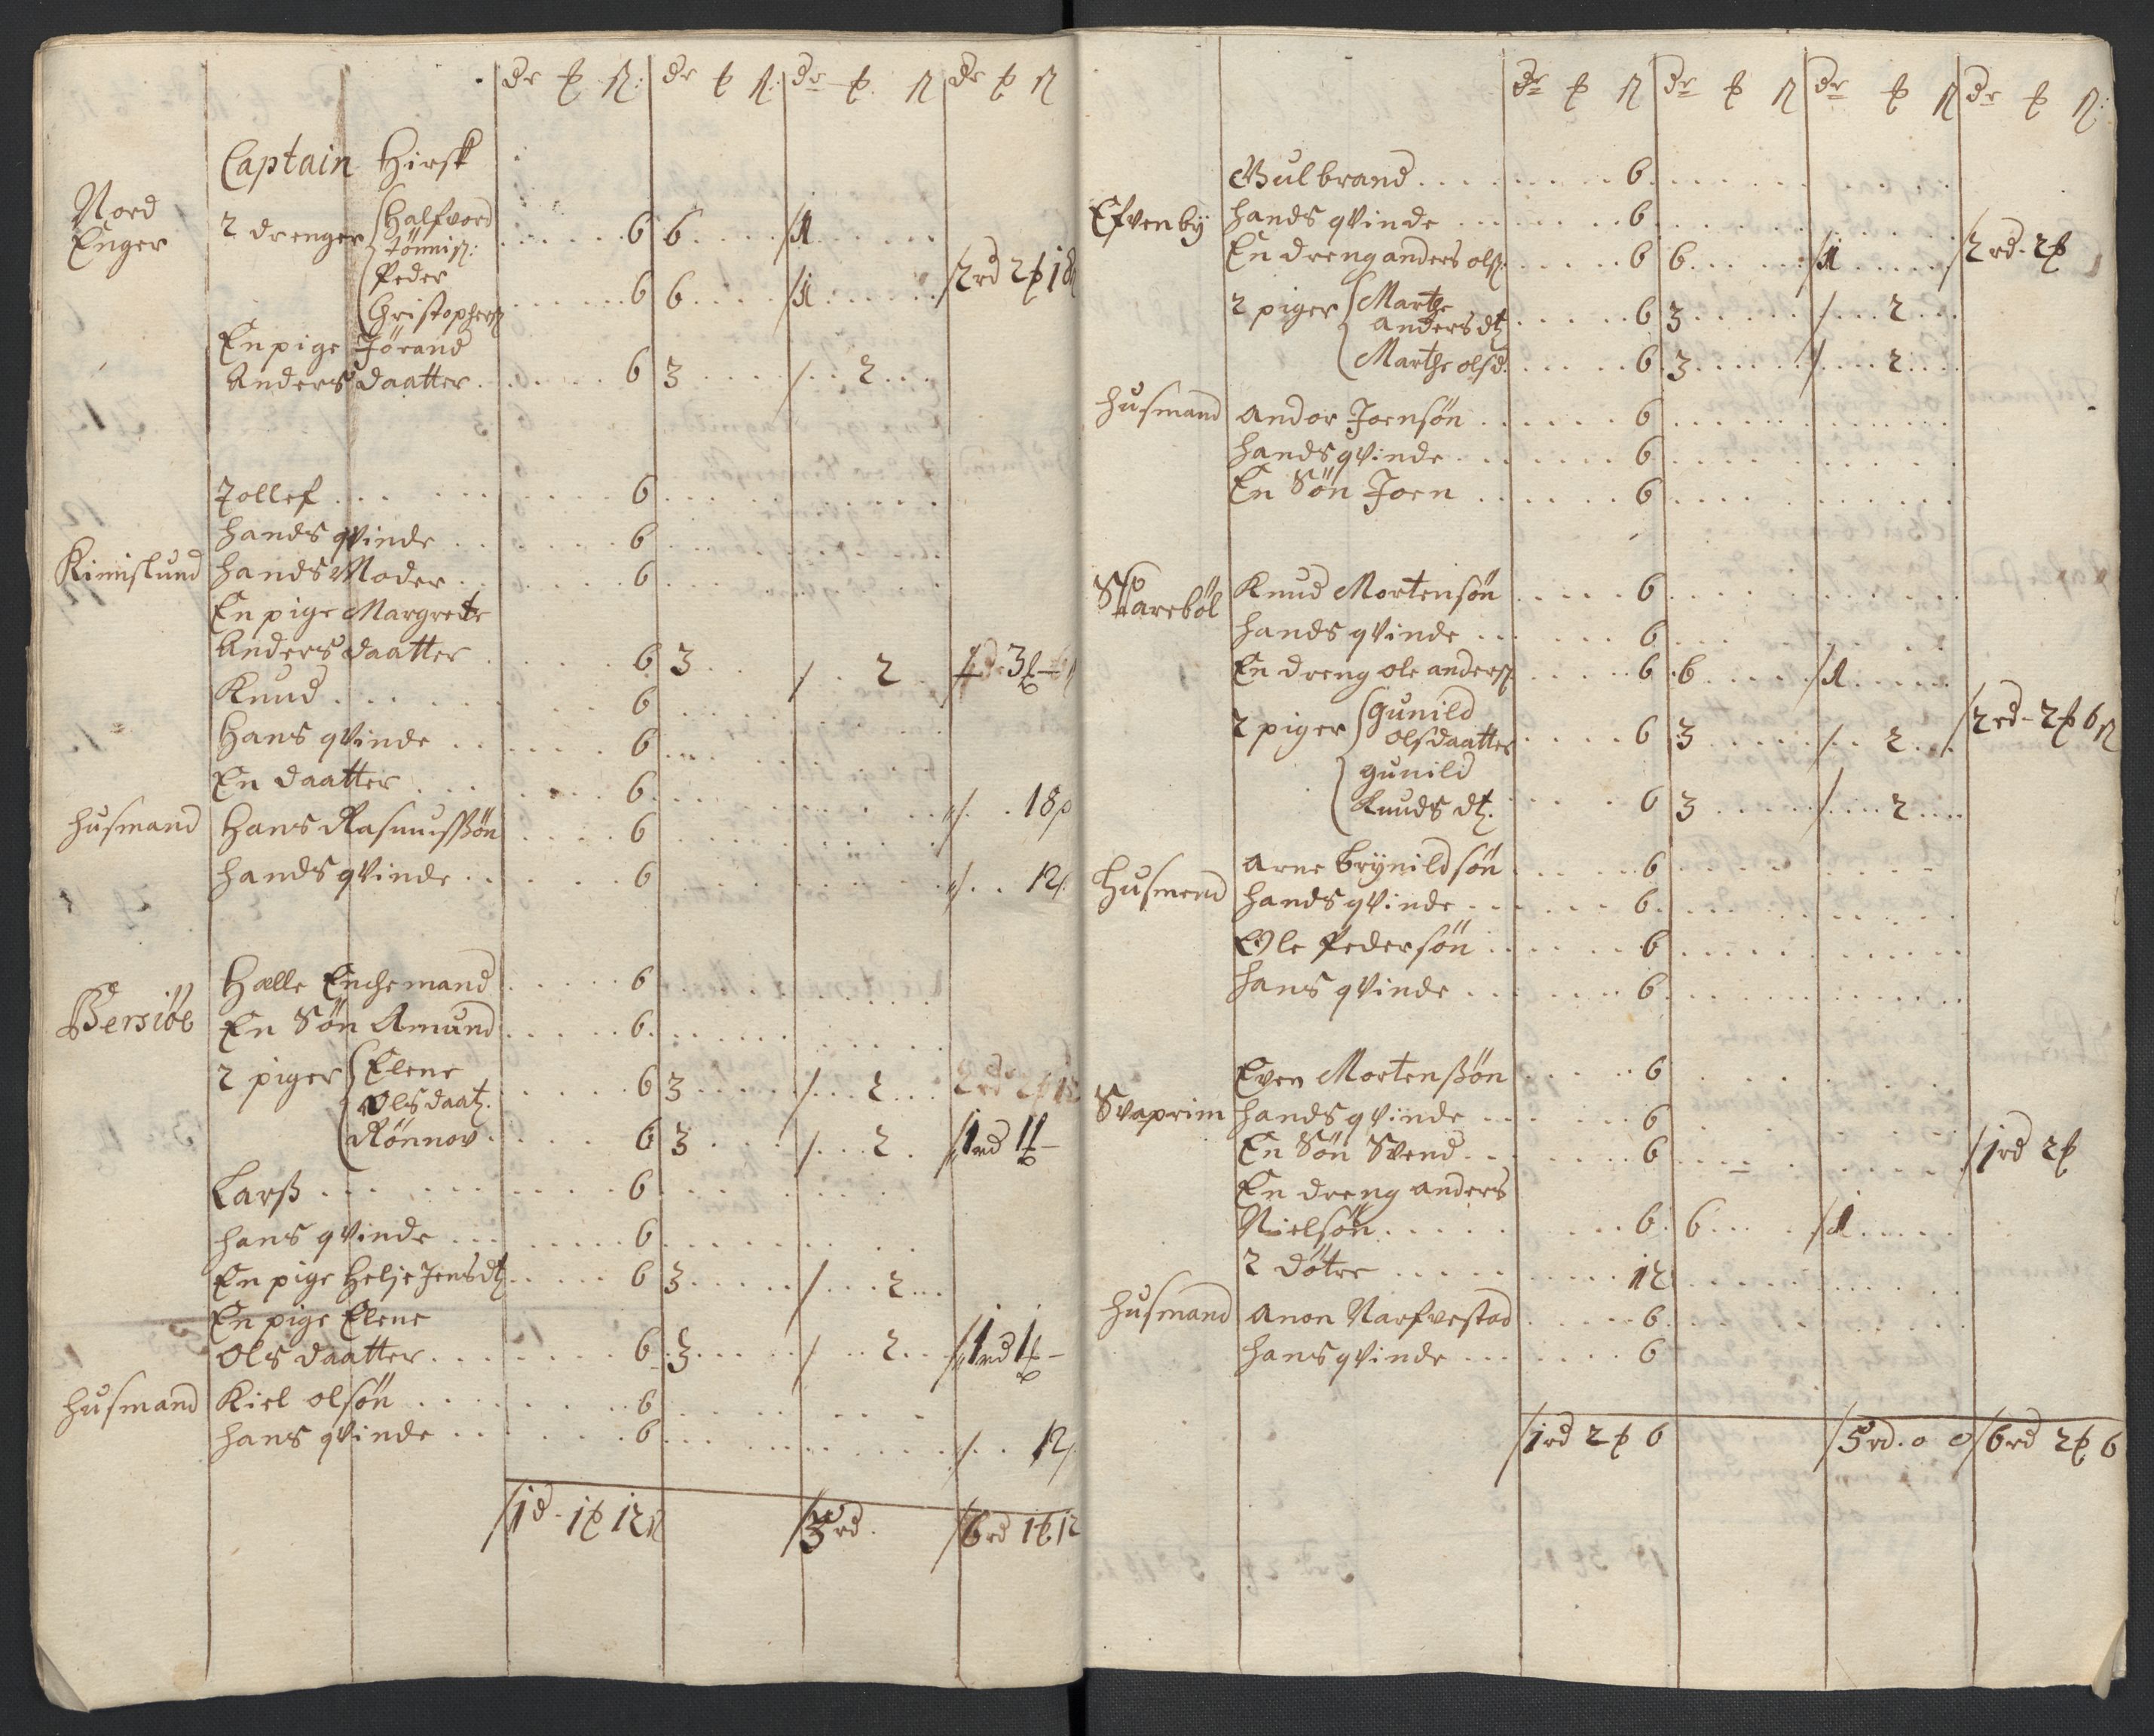 dr ₰ ß: dr ₰ ß: dr ₰. ß dr ₰ ß
Captain Hirsk
Nord Enger
2 drenger Halfvord Tönnisß: 6 6 /1
Peder Christophersß 6 6 /1 /2rd 2₰ 18
En pige Jörand
Anders daatter 6 3 / 2
Tollef 6
hands qvinde 6
Kinnislund hands Moder 6
En pige Margrete
Anders daatter 6 3 / 2
Knud 6
Hans qvinde 6
En daatter 6
husmand Hans Rasmussßön 6 /. 18
hands qvinde 6 /. 12
Hælle Enchemand 6
En Sön Amund 6
2 piger Elene Olsdaat. 6 3 / 2
Rönnov 6 3 / 2 /1rd 1₰ –
Larß 6
hans qvinde 6
En pige Helje Jensdt 6 3 / 2
En pige Elene
Ols daatter 6 3 / 2 /1rd 1₰ –
husmand Kiel olsön 6
hans qvinde 6 / 12
/1d - 1₰ 12ß /3rd. /6rd 1₰ 12
dr ₰ ß dr ₰ ß dr ₰ ß dr ₰ ß:
Gulbrand 6
Efvenby hands qvinde 6
En dreng anders olß: 6 6 /1 /2rd. 2₰
2 piger Marthe anders dt 6 3 / 2
Marthe olsd. 6 3 / 2
husmand andor Joensön 6
hands qvinde 6
En Sön Joen 6
Skareböl Knud Mortensön 6
hands qvinde 6
En dreng ole andersß 6 6 /1
2 piger gunild olsdaatter 6 3 / 2 /2rd - 2₰ 6ß
gunild Knuds dt. 6 3 / 2
Husmend arne brynildsön 6
hands qvinde 6
Ole Pedersön 6
hans qvinde 6
Even Mortenßön 6
Svaprim hands qvinde 6
En Sön Svend 6 /1rd 2₰
En dreng anders
Nielsön 6 6 /1
2 dötre 12
husmand anon Narfvestad 6
hans qvinde 6
/1rd 2₰ 6 /5rd. 0 0 /6rd 2₰ 6